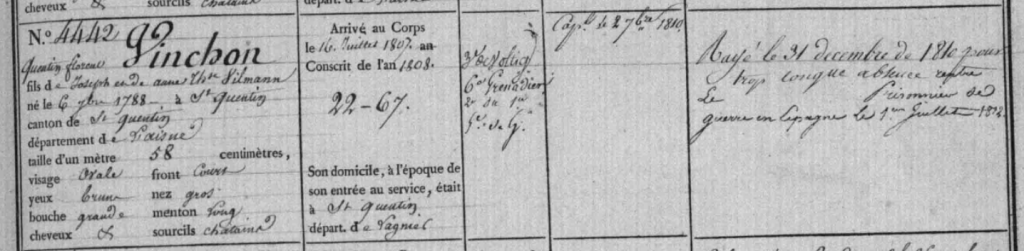 cheveux & sourcils chatains
départ. d
N.º 4442 Pinchon
Quentin florent
fils de Joseph et de anne Thse Vilmann
né le 6 7bre 1788 à St Quentin
canton de St quentin
département de l'aisne
taille d'un mètre 58 centimètres,
visage Ovale front Court
yeux bruns nez gros
bouche grande menton long
cheveux & sourcils chatains
Arrivé au Corps
le 16 Juillet 1807. an
Conscrit de l'an 1808.
22-67.
Son domicile, à l'époque de
son entrée au service, était
à St Quentin
départ. de
6e Grenadiers
Cap.l le 27bre 1810.
Rayé le 31 decembre de 1810 pour
trop longue absence rentré
Le Prisonnier de
guerre en Espagne le 1er Juillet